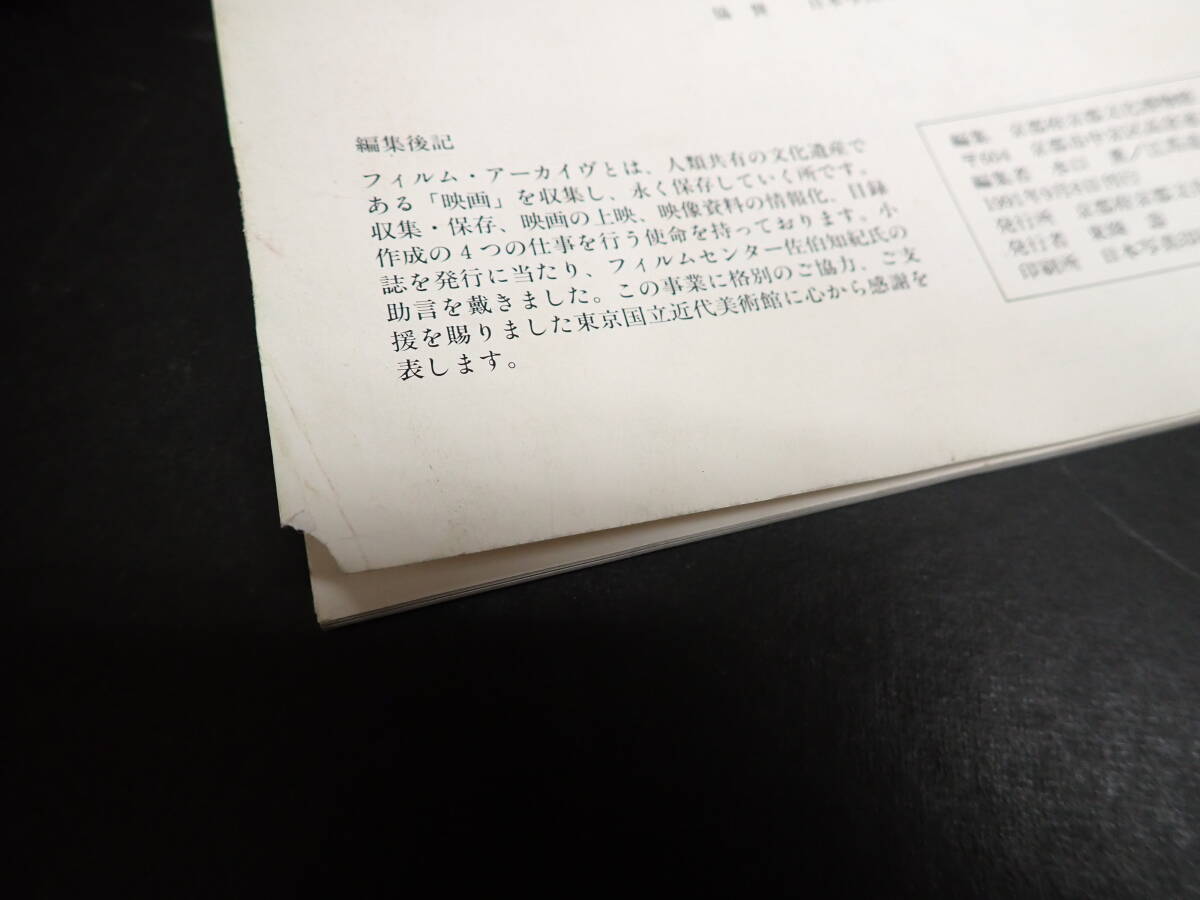 協賛 日本写真
編集後記
フィルム・アーカイヴとは、人類共有の文化遺産で
ある「映画」を収集し、永く保存していく所です。
収集・保存、映画の上映、映像資料の情報化、目録
作成の４つの仕事を行う使命を持っております。小
誌を発行に当たり、フィルムセンター佐伯知紀氏の
助言を戴きました。この事業に格別のご協力、ご支
援を賜りました東京国立近代美術館に心から感謝を
表します。
編集 京都府京都文化博物館
〒604 京都市中京区
編集者
1991年9月
発行所 京都府京都文
発行者
印刷所 日本写真印